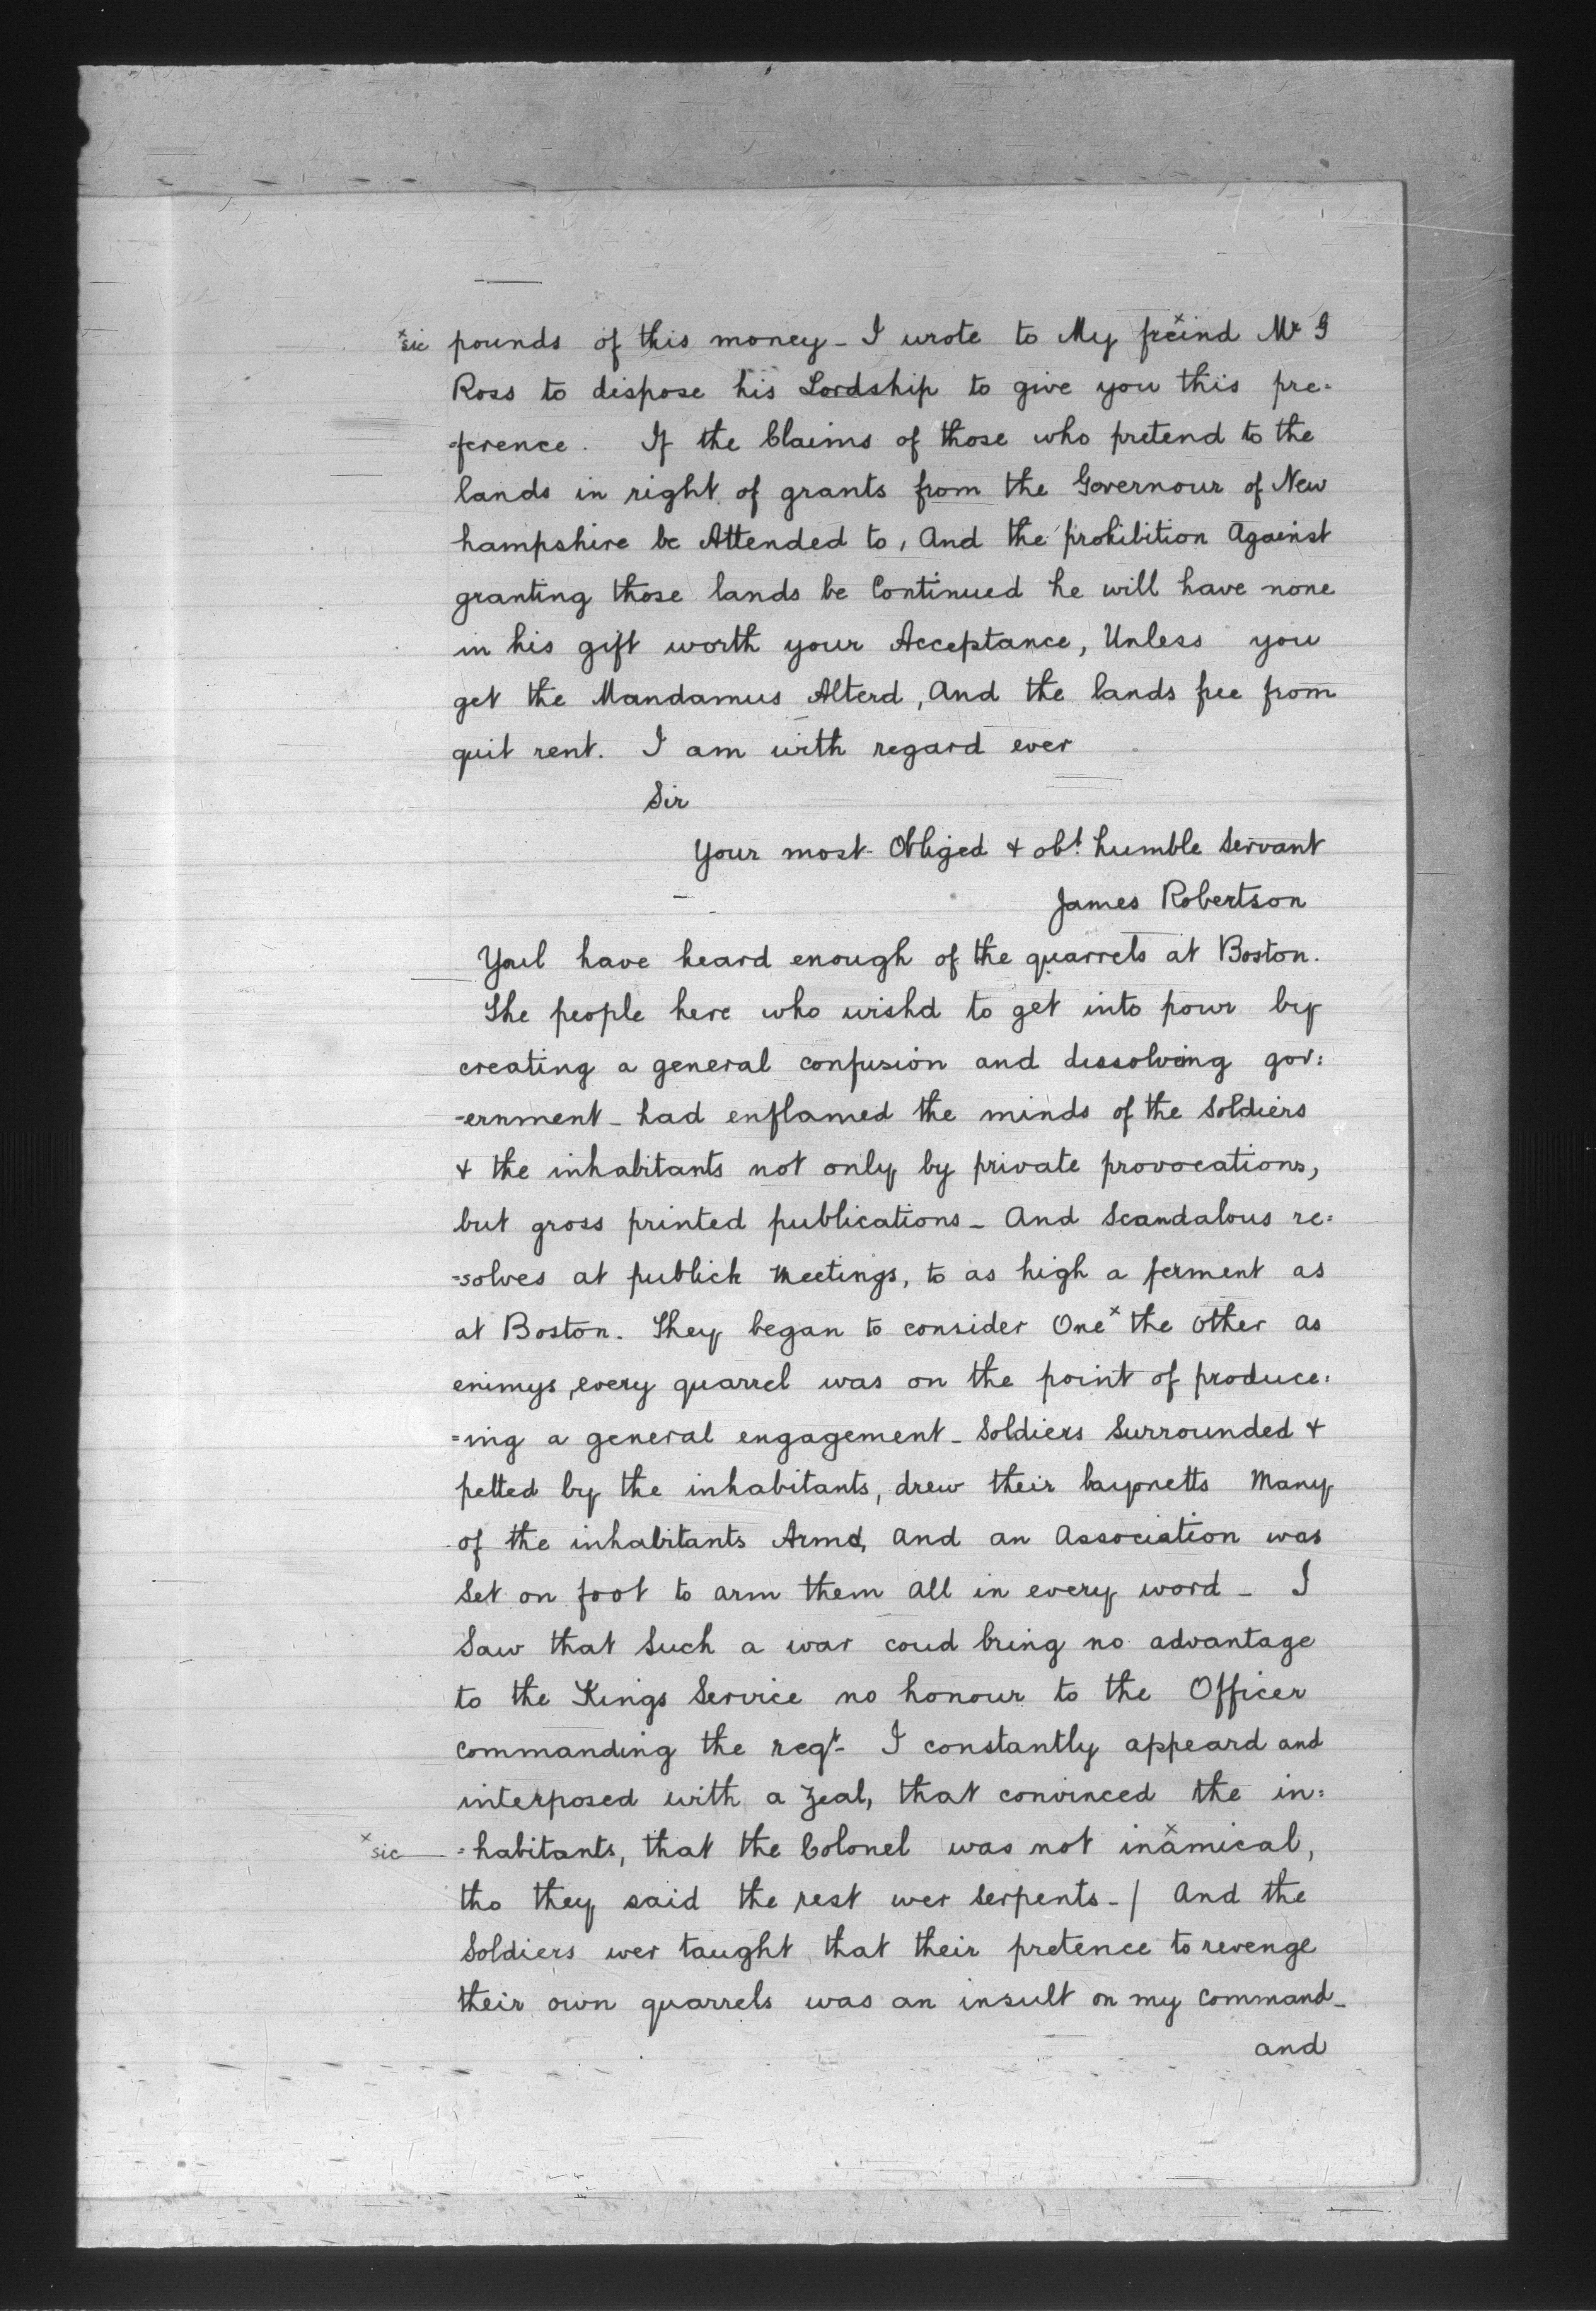 ×sic pounds of this money - I wrote to My fre×ind Mr G
Ross to dispose his Lordship to give you this pre=
=ference. If the Claims of those who pretend to the
lands in right of grants from the Governour of New
hampshire be Attended to, And the prohibition Against
granting those lands be Continued he will have none
in his gift worth your Acceptance, Unless you
get the Mandamus Alterd, And the lands free from
quit rent. I am with regard ever
Sir
Your most Obliged & obt. humble Servant
James Robertson
Youl have heard enough of the quarrels at Boston.
The people here who wishd to get into powr by
creating a general confusion and dissolveing gov:
=ernment - had enflamed the minds of the Soldiers
& the inhabitants not only by private provocations,
but gross printed publications - And Scandalous re=
=solves at publick Meetings, to as high a ferment as
at Boston. They began to consider One× the other as
enimys, every quarrel was on the point of produce:
=ing a general engagement - Soldiers Surrounded &
pelted by the inhabitants, drew their bayonetts Many
of the inhabitants Armd, And an Association was
Set on foot to arm them all in every word - I
Saw that Such a war coud bring no advantage
to the Kings Service no honour to the Officer
commanding the regt - I constantly appeard and
interposed with a Zeal, that convinced the in:
×sic =habitants, that the Colonel was not ina×mical,
tho they said the rest wer Serpents - / And the
Soldiers wer taught that their pretence to revenge
their own quarrels was an insult on my Command -
and